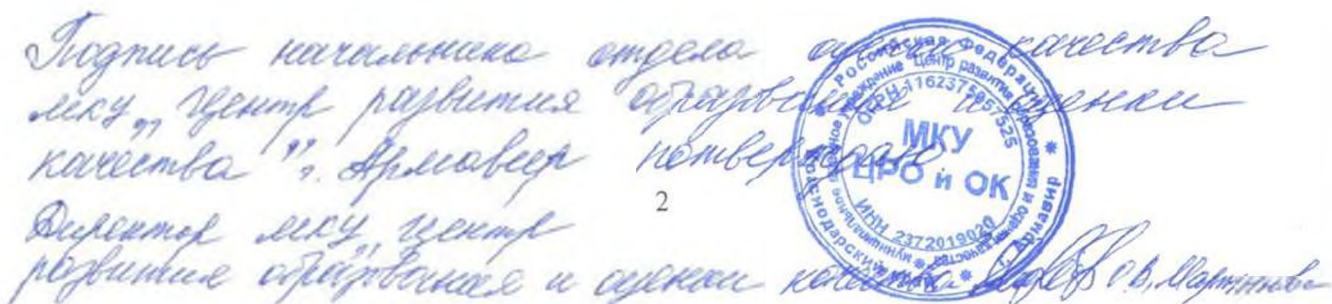 Подпись начальника отдела оценки качества
МКУ "Центр развития образования и оценки
качества" г. Армавир подтверждаю
2
Директор МКУ "Центр
развития образования и оценки качества О.В. Мартынова
Российская Федерация * Краснодарский край * г. Армавир *
муниципальное казенное учреждение "Центр развития образования и оценки качества" *
ОГРН 1162375057525
МКУ
ЦРО и ОК
ИНН 2372019020